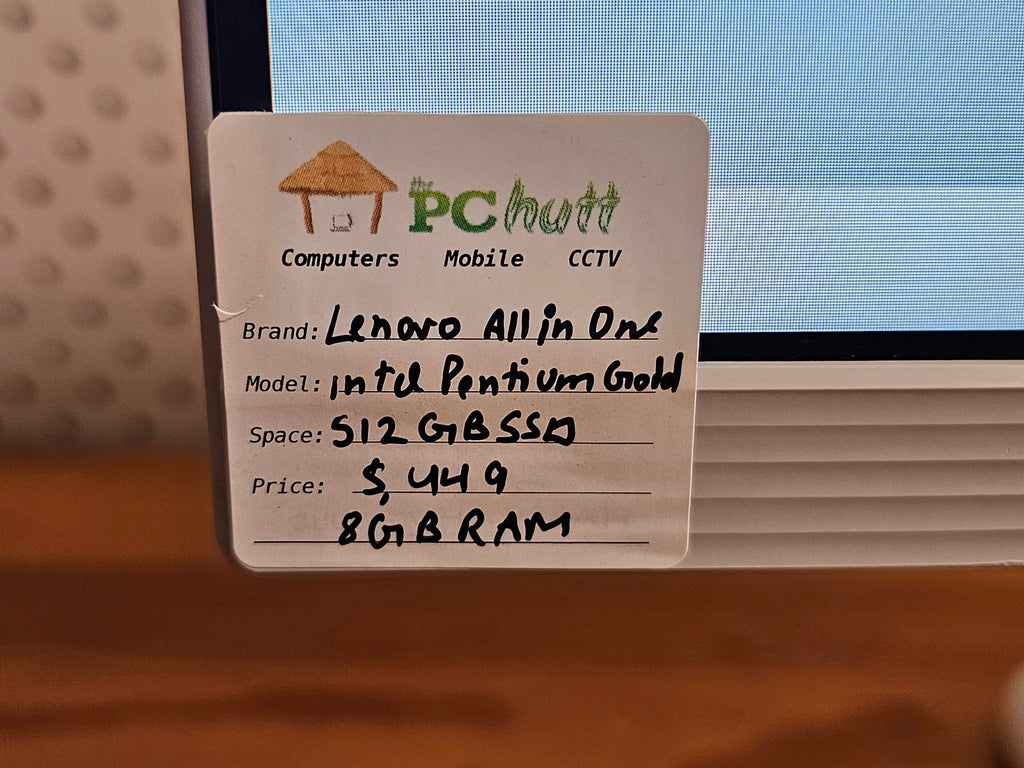 the PC hutt
Computers Mobile CCTV
Brand: Lenovo All in One
Model: intel Pentium Gold
Space: 512 GB SSD
Price: $ 449
8GB RAM